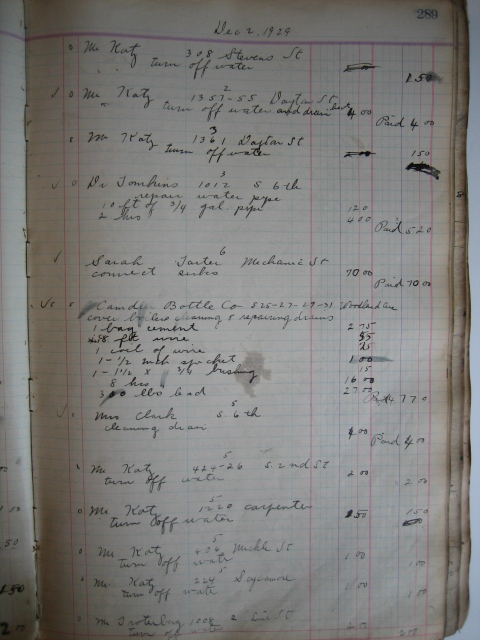 289
Dec 2, 1929
o Mr Katz 308 Stevens St
turn off water 1 50
√ o Mr Katz 2 1357-55 Dayton St
turn off water and drain 4 00 Paid 4 00
o Mr Katz 3 1361 Dayton St
turn off water 1 50
√ o Dr Tomkins 3 1012 S 6th
repair water pipe
10 ft of 3/4 gal pipe 1 20
2 hrs 4 00 Paid 5 20
√ Sarah Tarter 6 Mechanic St
connect sinks 70 00 Paid 70 00
Camden Bottle Co 525-27-29-31 Woodland ave
cover boilers cleaning & repairing drains
1 bag cement 2 75
wire
1 coil of wire 25
1-1/2 inch 1 00
1-1 1/2 x 3/4 bushing 15
8 hrs 16 00
300 lbs 27 00
Mrs Clark 5 S 6th
cleaning drain 4 00 Paid 4 00
Mr Katz 5 424-26 S. 2nd St
turn off water 2 00 2 00
o Mr Katz 5 1220 Carpenter
turn off water 1 50 1 50
Mr Katz 5 Mickle St
turn off wate 1 00 1 00
Mr Katz 5 224 Sycamore
turn off wate 1 00 1 00
turn off water